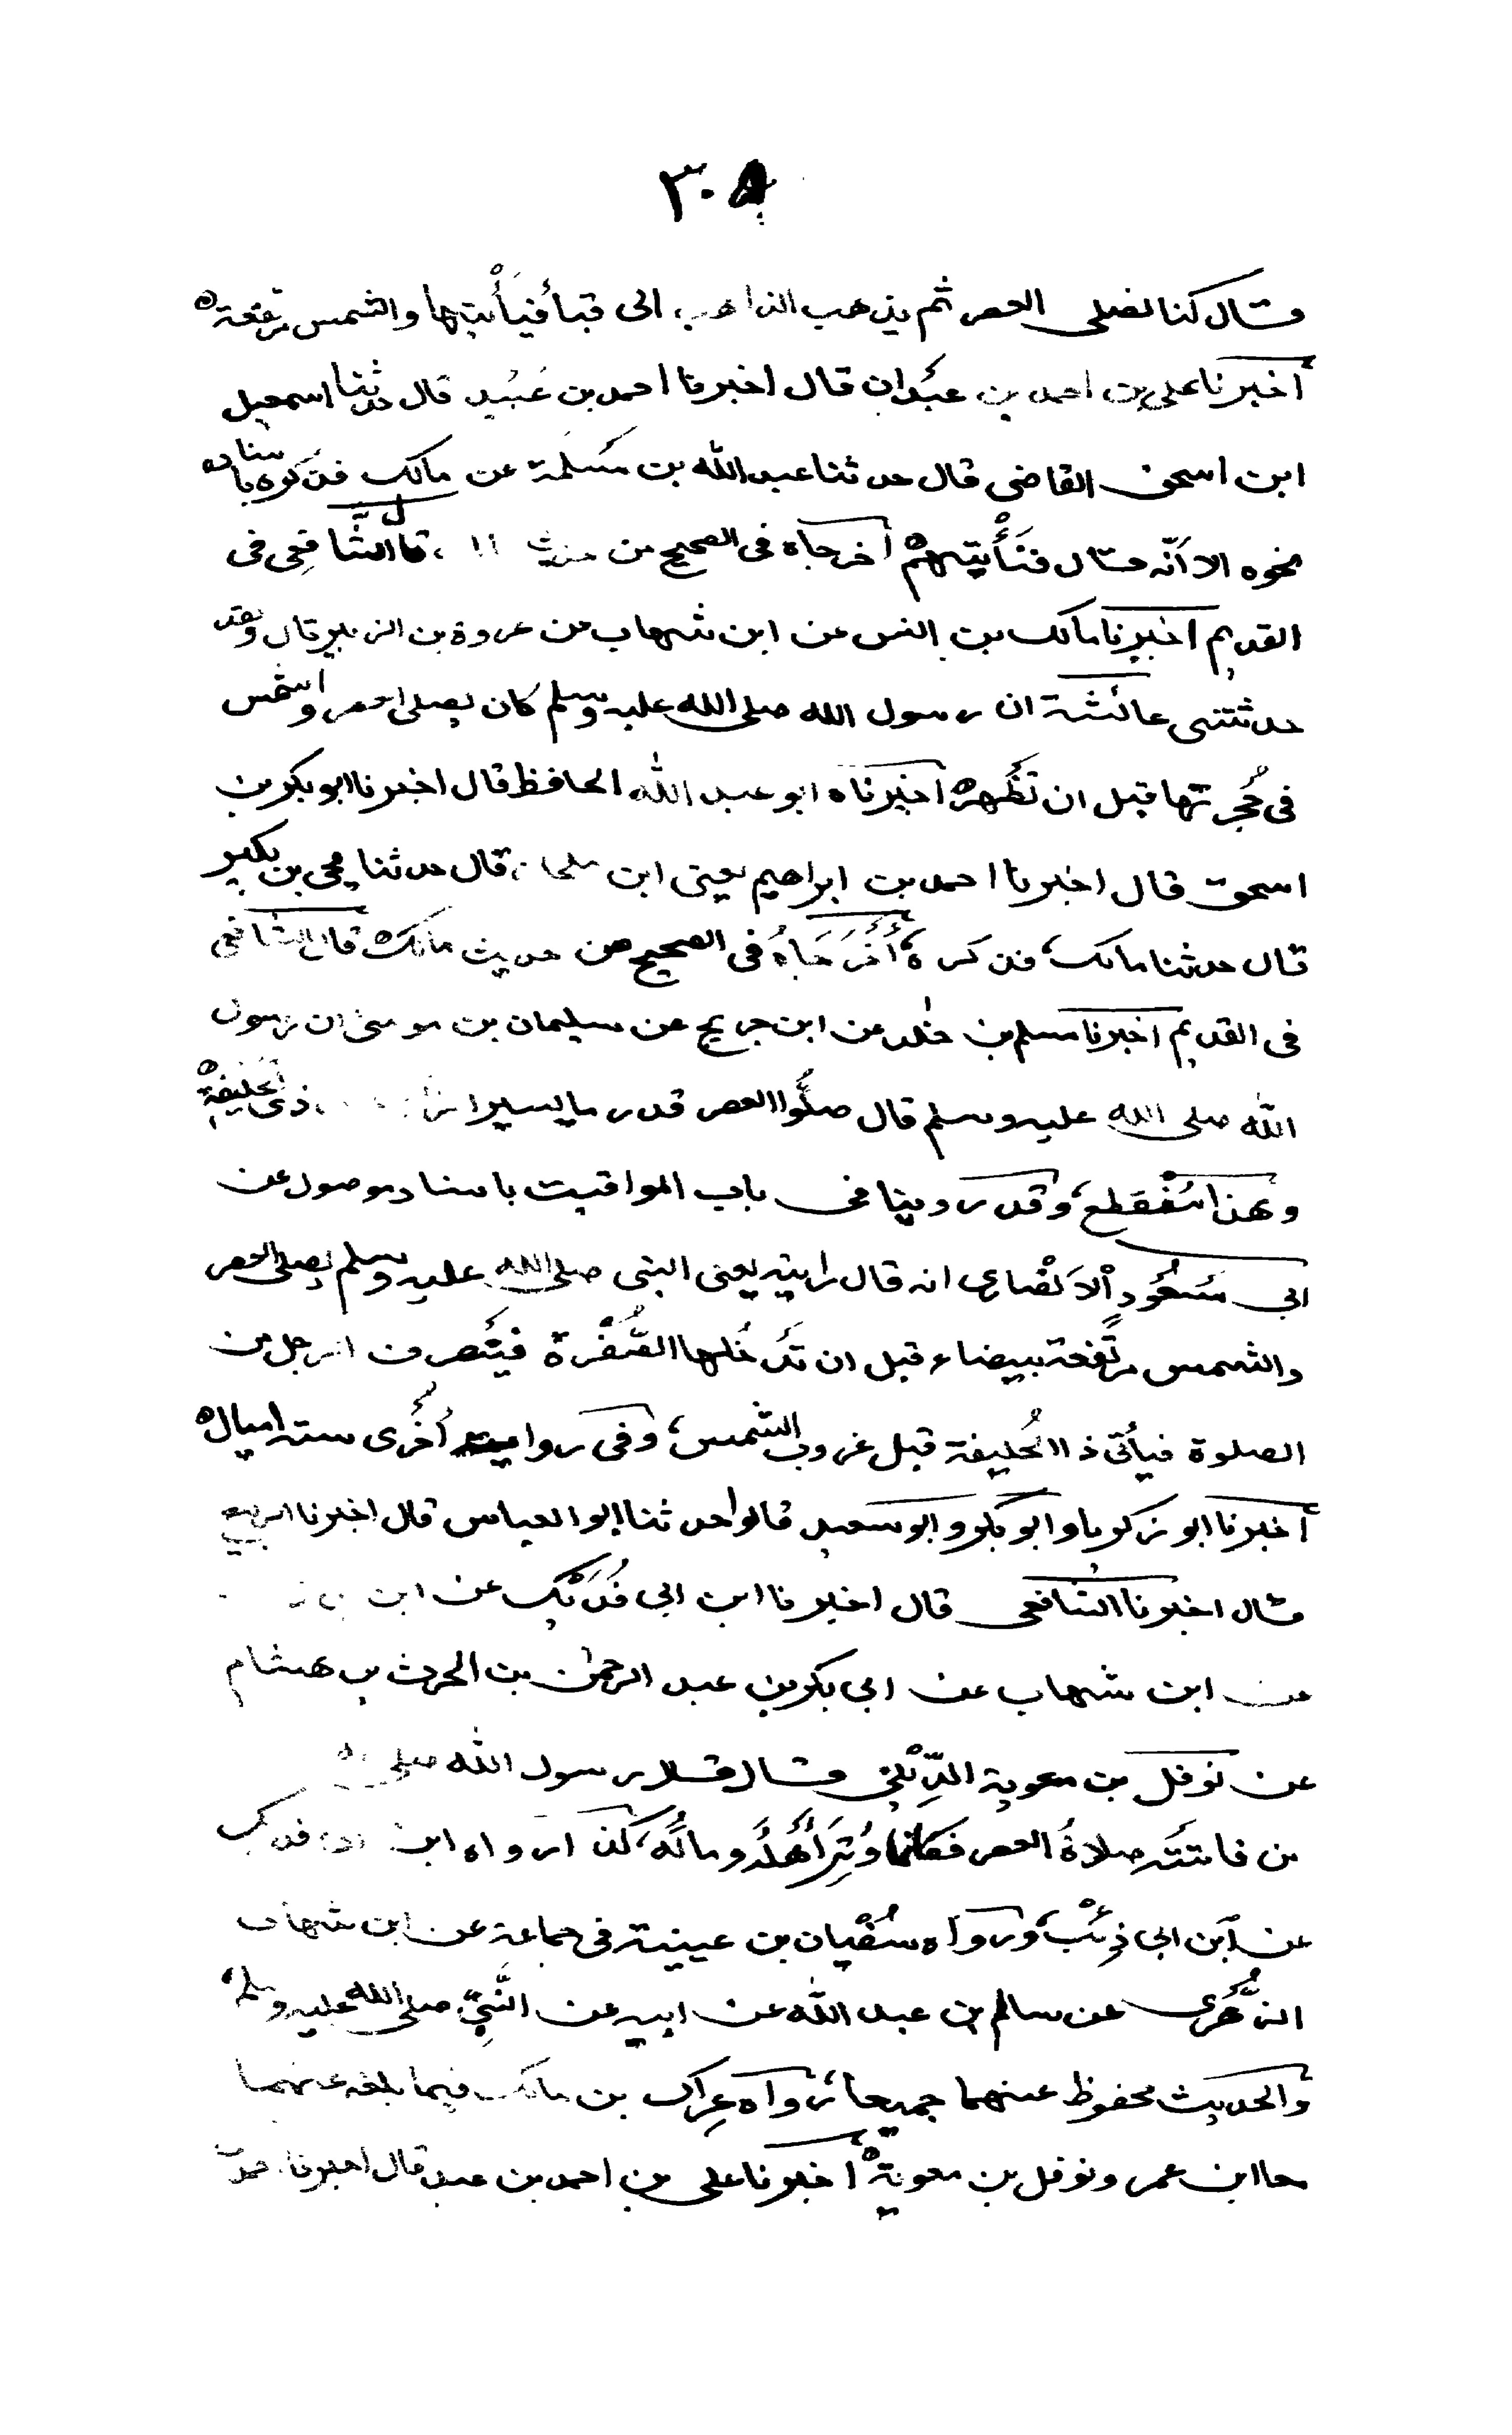 ٣٠٨
قال كنا نصلى العصر ثم يذهب الذاهب الى قبأ فيأتيها والشمس مرتفعة
أخبرنا على بن احمد بن عبدان قال اخبرنا احمد بن عُبَيد قال حدثنا اسمعيل
ابن اسحق القاضى قال حدثنا عبد الله بن مَسْلَمة عن مالك فذكره باسناده
نحوه الا انّه قال فَيَأْتيهم أخرجاه فى الصحيح من حديث قال الشّافِعى فى
القديم اخبرنا مالك بن انس عن ابن شهاب عن عروة بن الزبير قال ولقد
حدثتنى عائشة ان رسول الله صلى الله عليه وسلم كان يصلى العصر والشمس
فى حُجرتها قبل ان تَظْهر أخبرناه ابو عبد الله الحافظ قال اخبرنا ابو بكر بن
اسحق قال اخبرنا احمد بن ابراهيم يعنى ابن ملحان قال حدثنا يحيى بن بكير
قال حدثنا مالك فذكره أَخْرَجَاهُ فى الصحيح من حديث مالك قال الشافعى
فى القديم اخبرنا مسلم بن خٰلد عن ابن جريج عن سليمان بن موسى ان رسول
الله صلى الله عليه وسلم قال صلُّوا العصر قدر ما يسير ذى الحُليفة
وهذا مُنْقَطع وقد روينا فى باب المواقيت باسناد موصول عن
ابى مَسْعُودٍ الْاَنْصارى انه قال رايته يعنى النبى صلى الله عليه وسلم يصلى العصر
والشمس مرتفعة بيضاء قبل ان تَدْخُلها الصُّفْرة فينصرف الرجل من
الصلوة فيأتى ذا الحُليفة قبل غروب الشّمس وفى رواية أُخْرى ستة اميال
أخبرنا ابو زكريا وابو بكر وابو سعيد قالوا حدثنا ابو العباس قال اخبرنا الربيع
قال اخبرنا الشافعى قال اخبرنا ابن ابى فُدَيْك عن ابن
عن ابن شهاب عن ابى بكر بن عبد الرحمٰن بن الحرث بن هشام
عن نوفل بن معوية الدِّيْلى قال قال رسول الله صلى
من فاتَتْه صلاةُ العصر فكانما وُتِرَ أَهْلَهُ ومالَهُ كذا رواه ابن ابى فديك
عن ابن ابى ذِئْب ورواه سُفْيان بن عيينة فى جماعة عن ابن شهاب
الزُّهْرى عن سالم بن عبد الله عن ابيه عن النَّبِىّ صلى الله عليه وسلم
والحديث محفوظ عنهما جميعا رواه عِراك بن مالك فيما بلغه عنهما
معا ابن عمر ونوفل بن معوية أخبرنا على بن احمد بن عبد قال اخبرنا احمد